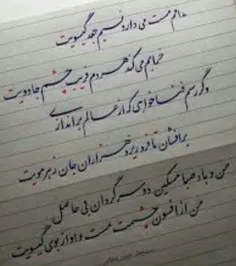 مدامم مست می دارد نسیم جعد گیسویت
خرابم می کند هر دم فریب چشم جادویت
وگر رسم فنا خواهی که از عالم براندازی
برافشان تا فرو ریزد هزاران جان ز هر مویت
من و باد صبا مسکین دو سرگردان بی حاصل
من از افسون چشمت مست و او از بوی گیسویت